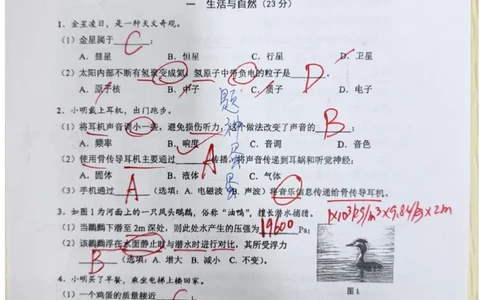 一 生活与自然(23分)
1. 金星凌日，是一种天文奇观。
(1)金星属于 C ；
A. 彗星 B. 恒星 C. 行星 D. 卫星
(2)太阳内部不断有氢聚变成氦，氢原子中带负电的粒子是 D 。
A. 原子核 B. 中子 C. 质子 D. 电子
2. 小明戴上耳机，出门跑步。
(1)将耳机声音调小一些，避免损伤听力，这个做法改变了声音的 B ；
A. 频率 B. 响度 C. 音调 D. 音色
(2)使用骨传导耳机主要通过 A 传播，将声音传递到耳蜗和听觉神经；
A. 固体 B. 液体 C. 气体
(3)手机通过 A (选填：A. 电磁波 声波)将音乐信息传递给骨传导耳机。
3. 如图1为河面上的一只凤头䴙䴘，俗称“油鸭”，擅长潜水捕猎。
(1)当䴙䴘下潜至2m深处，则此处水产生的压强为 19600 Pa；
1×10³kg/m³×9.8N/kg×2m
(2)该䴙䴘浮在水面静止时与潜水时进行对比，其所受浮力
B (选填：A. 增大 B. 减小 C. 不变)。
图1
4. 小明买了早餐，乘坐电梯上楼回家。
(1)一个鸡蛋的质量接近 C ；
题